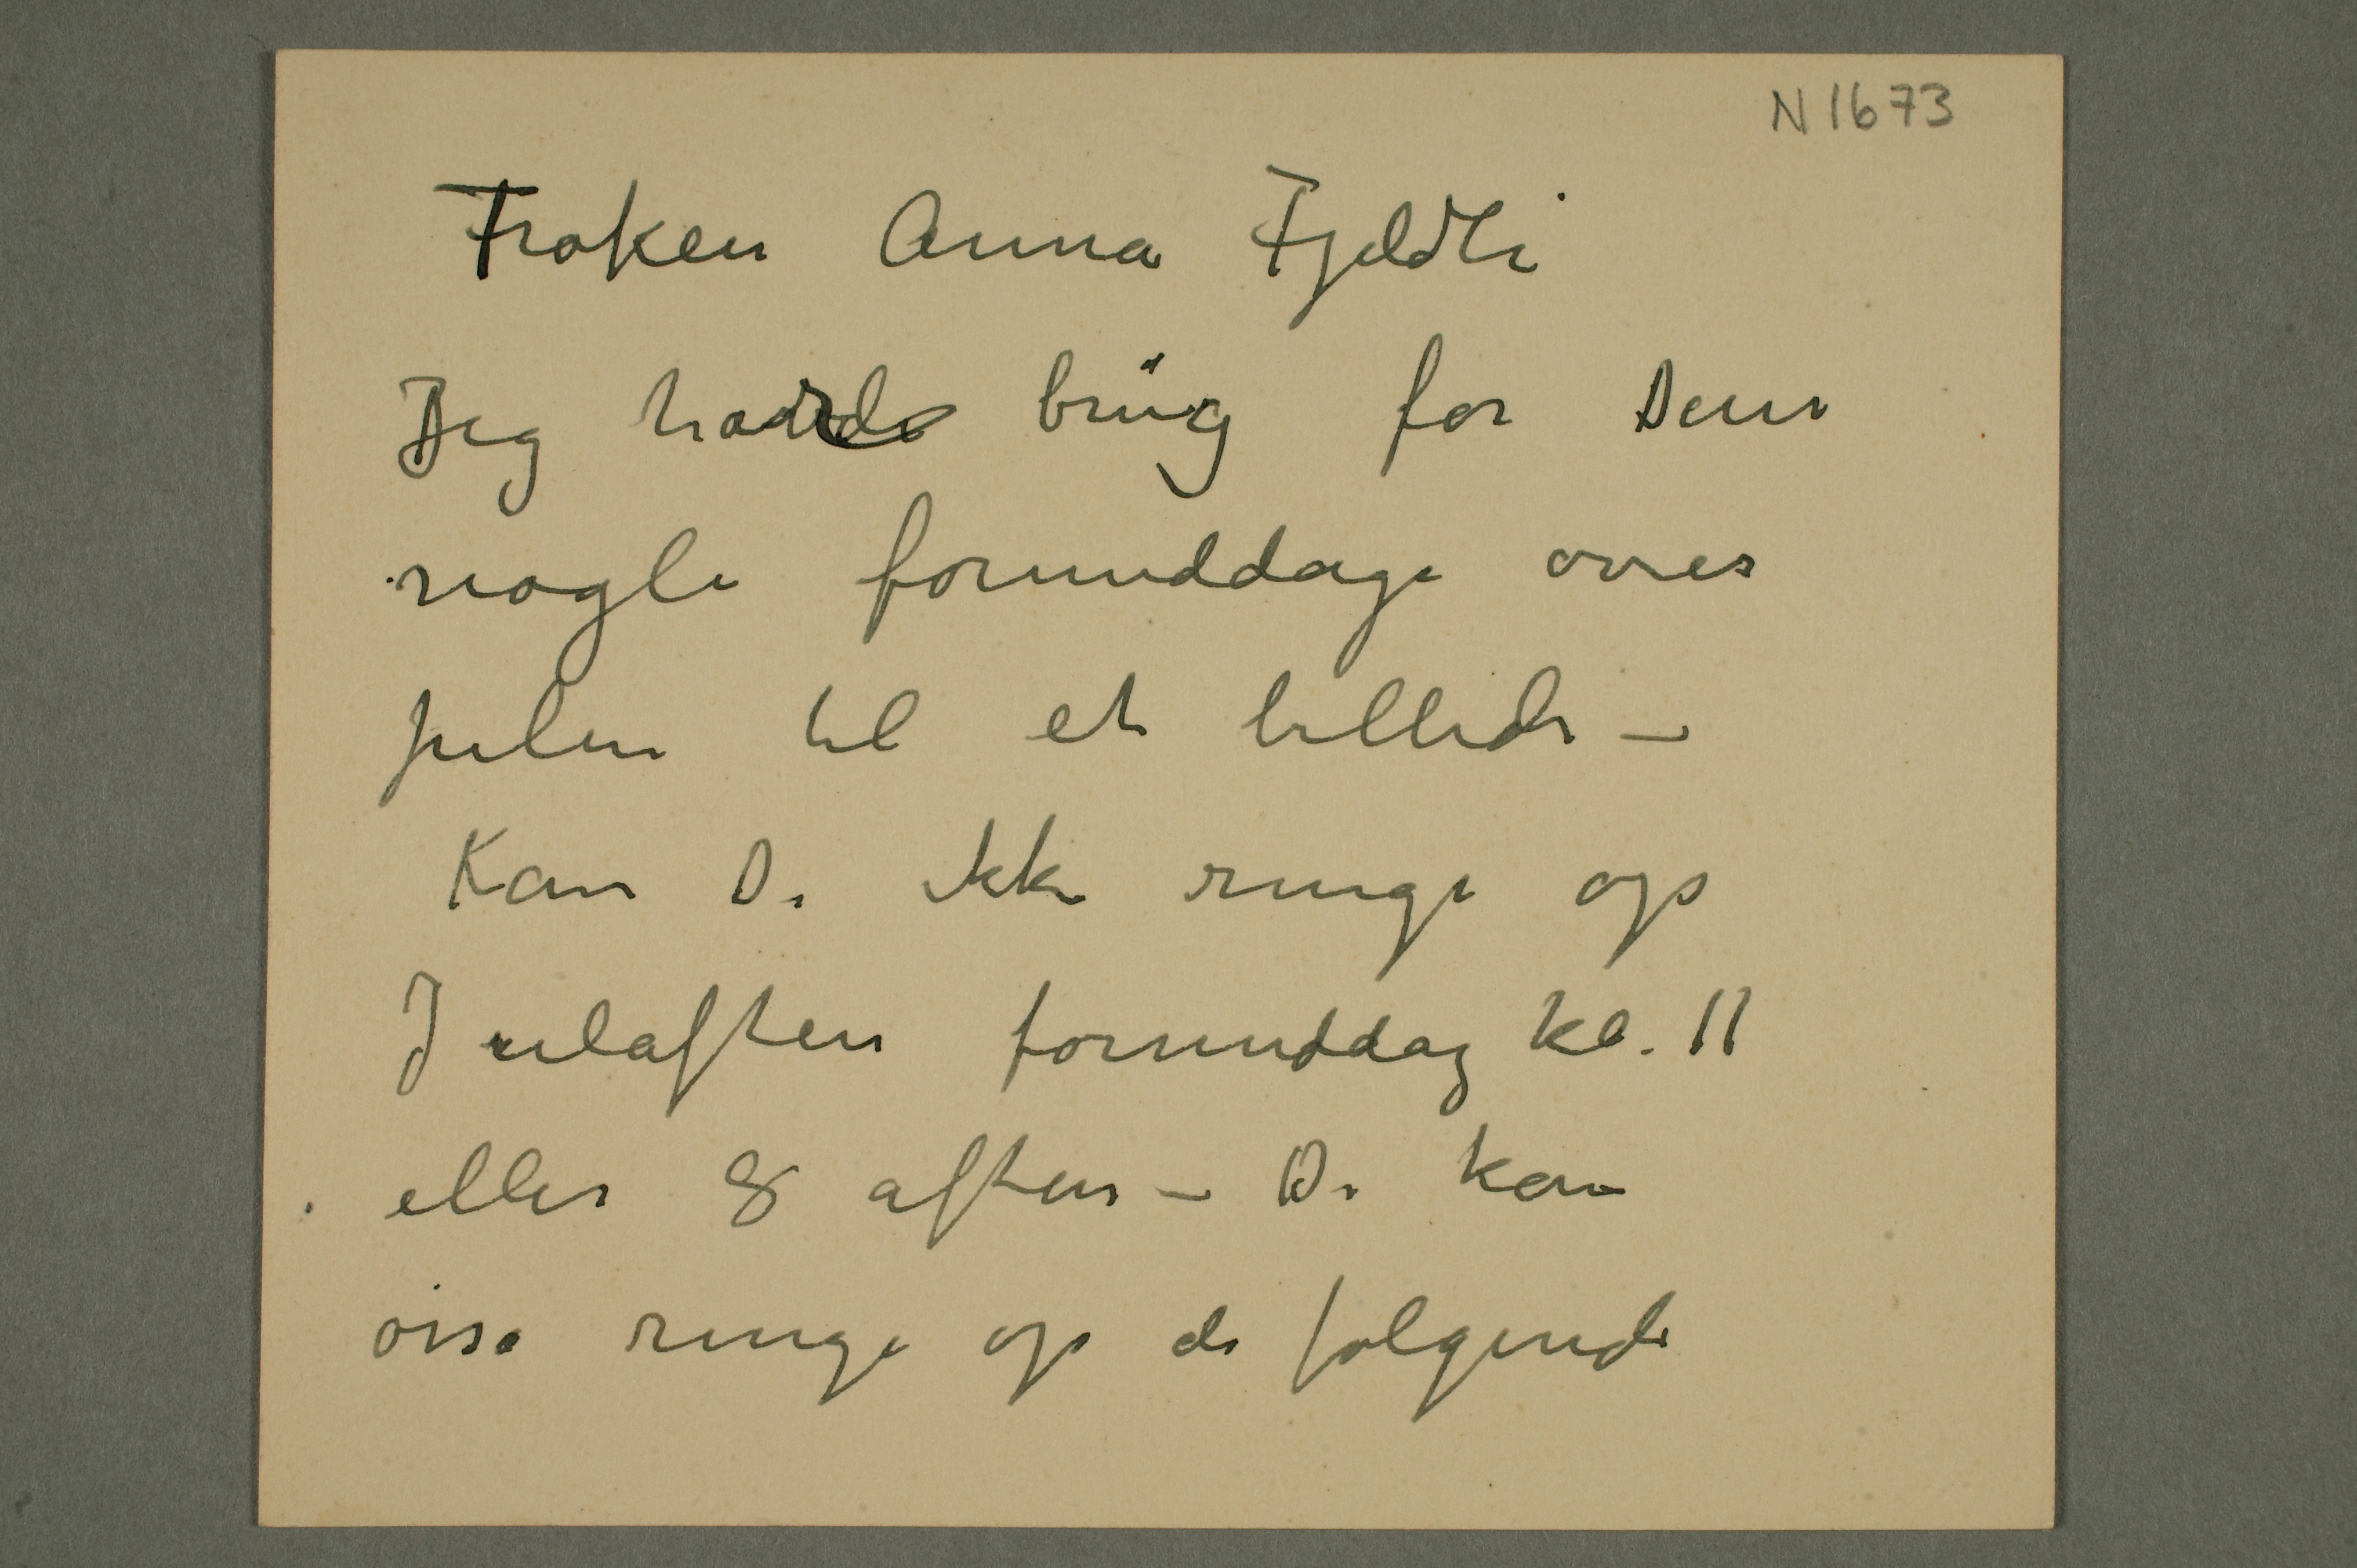 N 1673
Frøken Anna Fjeldli
Jeg havde brüg for Dem
nogle formiddage over
julen til et billede –
Kan De ikke ringe op
Julaften formiddag kl. 11
eller 8 aften – De kan
ringe op de følgende